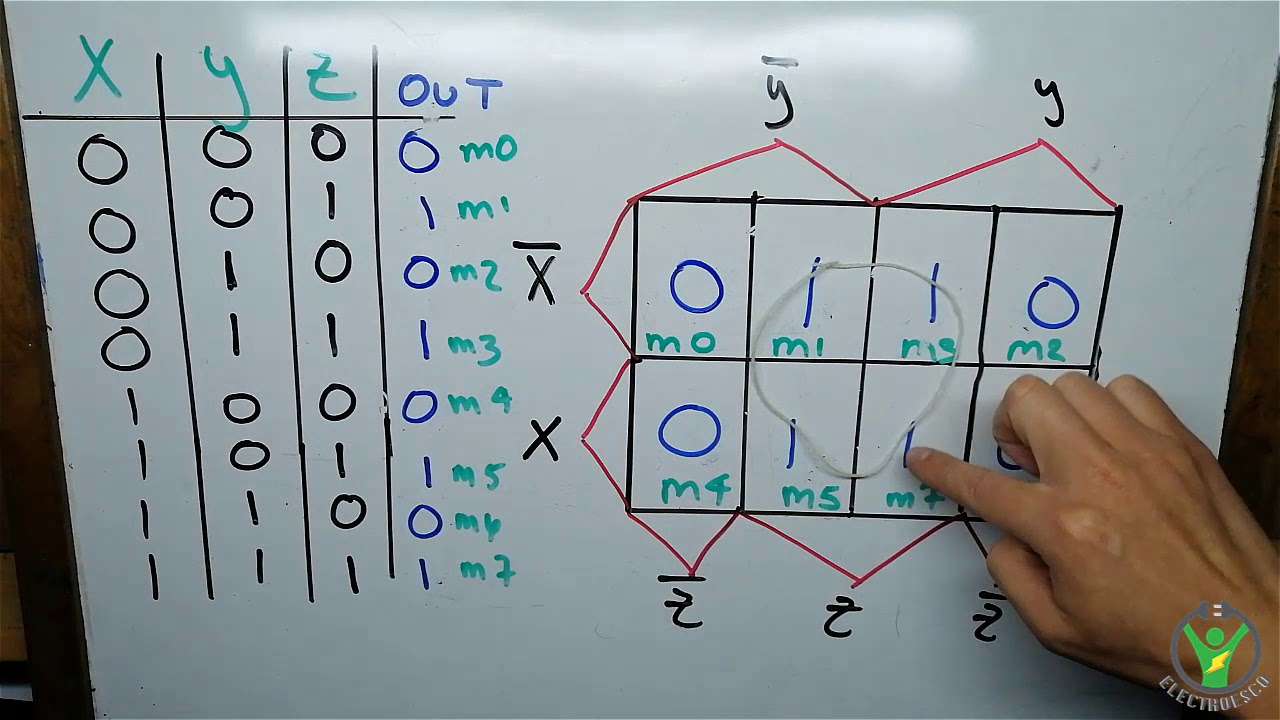 X y z OUT
0 0 0 0 m0
0 0 1 1 m1
0 1 0 0 m2
0 1 1 1 m3
1 0 0 0 m4
1 0 1 1 m5
1 1 0 0 m6
1 1 1 1 m7
y̅ y
X̅ 0 1 1 0
m0 m1 m3 m2
X 0 1 1
m4 m5 m7
z̅ z z̅
ELECTROESCO